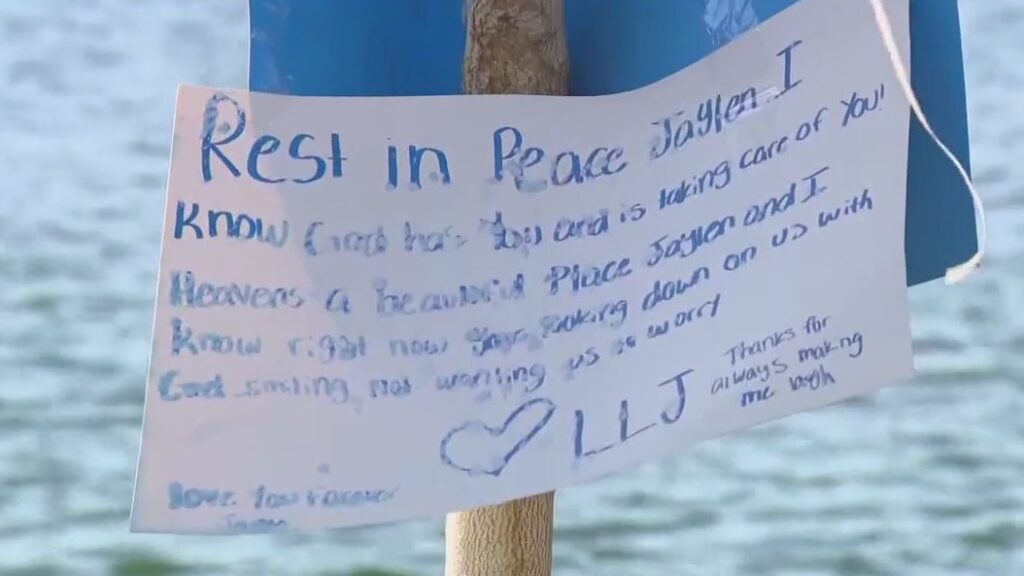 Rest in Peace Jaylen I
Know God has You and is taking care of You!
Heavens a beautiful Place Jaylen and I
Know right now your looking down on us with
God smiling, not wanting us to worry
♡ LLJ
Thanks for
always making
me laugh
Love You Forever